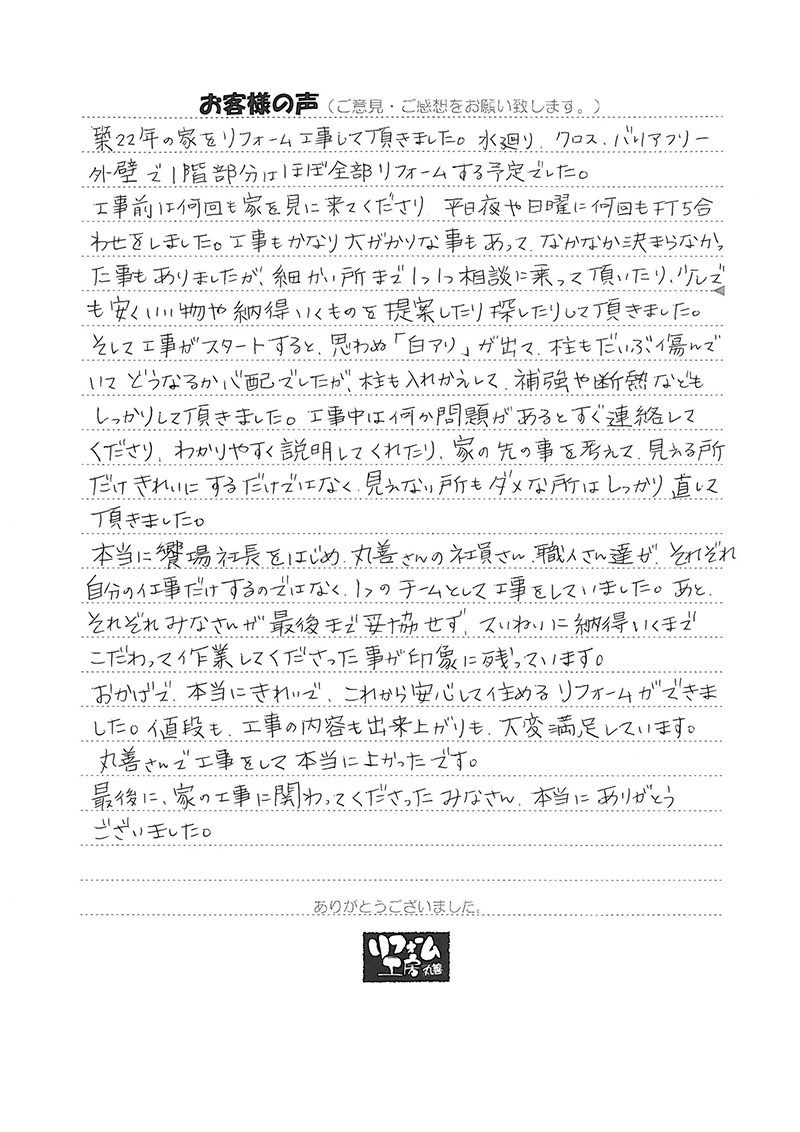 お客様の声（ご意見・ご感想をお願い致します。）
築22年の家をリフォーム工事して頂きました。水廻り、クロス、バリアフリー
外壁で1階部分はほぼ全部リフォームする予定でした。
工事前は何回も家を見に来てくださり、平日夜や日曜に何回も打ち合
わせをしました。工事もかなり大がかりな事もあって、なかなか決まらなかっ
た事もありましたが、細かい所まで1つ1つ相談に乗って頂いたり、少しで
も安くいい物や納得いくものを提案したり探したりして頂きました。
そして工事がスタートすると、思わぬ「白アリ」が出て、柱もだいぶ傷んで
いてどうなるか心配でしたが、柱も入れかえして、補強や断熱なども
しっかりして頂きました。工事中は何か問題があるとすぐ連絡して
くださり、わかりやすく説明してくれたり、家の先の事を考えて、見える所
だけきれいにするだけではなく、見えない所もダメな所はしっかり直して
頂きました。
本当に饗場社長をはじめ、丸善さんの社員さん、職人さん達が、それぞれ
自分の仕事だけするのではなく、1つのチームとして工事をしていました。あと、
それぞれみなさんが最後まで妥協せず、ていねいに納得いくまで
こだわって作業してくださった事が印象に残っています。
おかげで、本当にきれいで、これから安心して住めるリフォームができま
した。値段も、工事の内容も出来上がりも、大変満足しています。
丸善さんで工事をして本当に良かったです。
最後に、家の工事に関わってくださったみなさん、本当にありがとう
ございました。
ありがとうございました。
リフォーム
工房 丸善